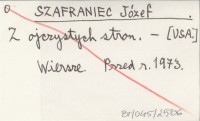 o SZAFRANIEC Józef.
Z ojczystych stron. - [USA.]
Wiersze Przed r. 1973.